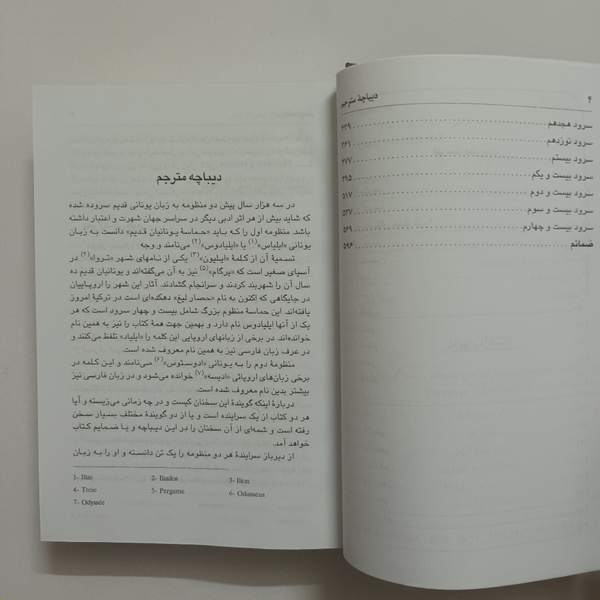 ۴ دیباچهٔ مترجم
سرود هجدهم ۴۳۹
سرود نوزدهم ۴۶۱
سرود بیستم ۴۷۷
سرود بیست و یکم ۴۹۵
سرود بیست و دوم ۵۱۷
سرود بیست و سوم ۵۳۷
سرود بیست و چهارم ۵۶۹
ضمائم ۵۹۶
دیباچه مترجم
در سه هزار سال پیش دو منظومه به زبان یونانی قدیم سروده شده
که شاید بیش از هر اثر ادبی دیگر در سراسر جهان شهرت و اعتبار داشته
باشد. منظومه اول را کـه بـاید «حماسهٔ یـونانیان قدیم» دانست بـه زبـان
یونانی «ایلیاس»(۱) یا «ایلیادوس»(۲) می‌نامند و وجه
تسمیهٔ آن از کـلمهٔ «ایـلیون»(۳) یکی از نـامهای شـهر «تـروا»(۴) در
آسیای صغیر است که «پرگام»(۵) نیز به آن می‌گفته‌اند و یونانیان قدیم ده
سال آن را شهربند کردند و سرانجام گشادند. آثار این شهر را اروپـاییان
در جایگاهی که اکنون به نام «حصار لیغ» دهکده‌ای است در ترکیهٔ امروز
یافته‌اند. این حماسهٔ منظوم بزرگ شامل بیست و چهار سرود است که هر
یک از آنها ایلیادوس نام دارد و بهمین جهت همهٔ کتاب را نیز به همین نام
خوانده‌اند. در برخی از زبانهای اروپایی این کلمه را «ایلیاد» تلفظ می‌کنند و
در عرف زبان فارسی نیز به همین نام معروف شده است.
منظومهٔ دوم را به یـونانی «ادوسئوس»(۶) می‌نامند و ایـن کـلمه در
برخی زبان‌های اروپائی «ادیسه»(۷) خوانده می‌شود و در زبان فارسی نیز
بیشتر بدین نام معروف شده است.
دربارهٔ اینکه گویندهٔ این سخنان کیست و در چه زمانی می‌زیسته و آیا
هر دو کتاب از یک سراینده است و یا از دو گویندهٔ مختلف بسیار سخن
رفته است و شمه‌ای از آن سخنان را در این دیباچه و بـا ضمایم کتاب
خواهد آمد.
از دیرباز سرایندهٔ هر دو منظومه را یک تن دانسته و او را به زبان
1- Ilias 2- Iliados 3- Ilion
4- Troie 5- Pergame 6- Odusseus
7- Odyssée